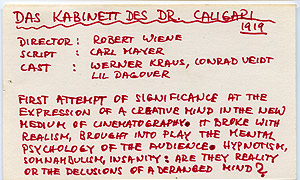 DAS KABINETT DES DR. CALIGARI
1919
DIRECTOR : ROBERT WIENE
SCRIPT : CARL MAYER
CAST : WERNER KRAUS, CONRAD VEIDT
LIL DAGOVER
FIRST ATTEMPT OF SIGNIFICANCE AT THE
EXPRESSION OF A CREATIVE MIND IN THE NEW
MEDIUM OF CINEMATOGRAPHY. IT BROKE WITH
REALISM, BROUGHT INTO PLAY THE MENTAL
PSYCHOLOGY OF THE AUDIENCE. HYPNOTISM,
SOMNAMBULISM, INSANITY: ARE THEY REALITY
OR THE DELUSIONS OF A DERANGED MIND?